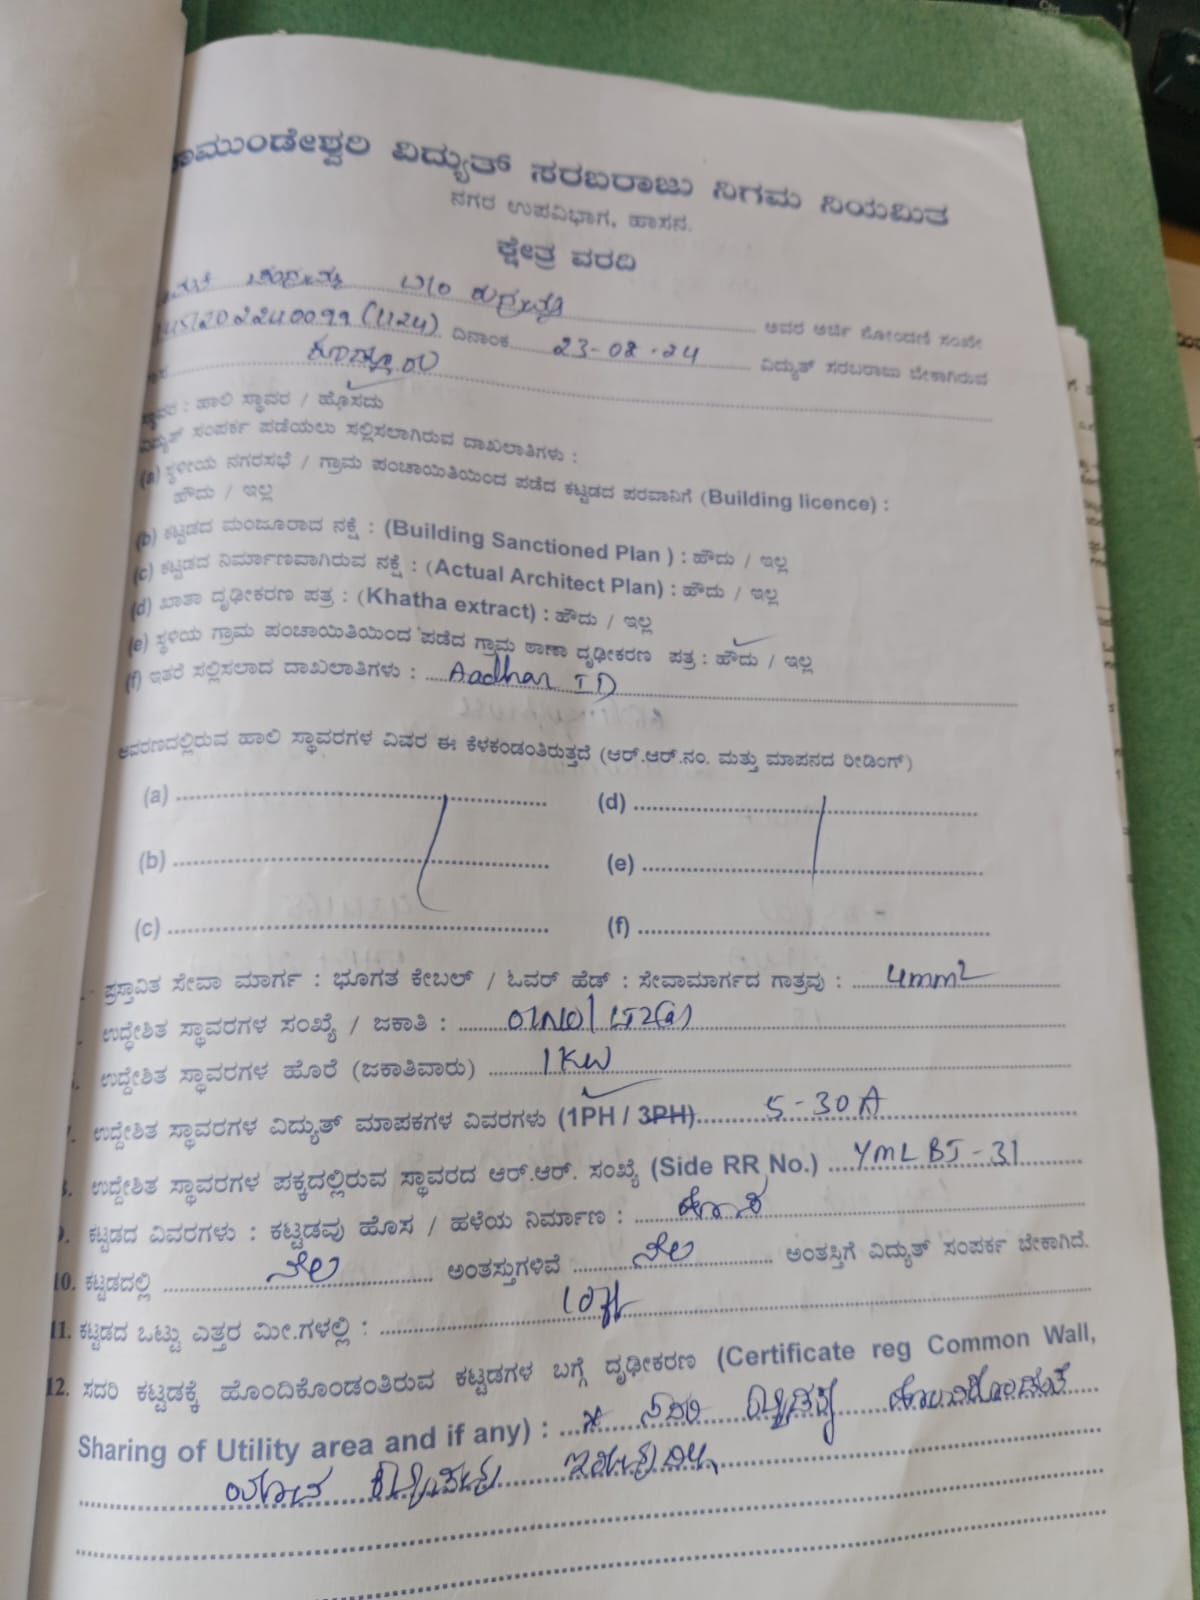 ಚಾಮುಂಡೇಶ್ವರಿ ವಿದ್ಯುತ್ ಸರಬರಾಜು ನಿಗಮ ನಿಯಮಿತ
ನಗರ ಉಪವಿಭಾಗ, ಹಾಸನ.
ಕ್ಷೇತ್ರ ವರದಿ
ಅವರ ಅರ್ಜಿ ನೋಂದಣಿ ಸಂಖೇ
202240099 (1124) ದಿನಾಂಕ 23-08-24 ವಿದ್ಯುತ್ ಸರಬರಾಜು ಬೇಕಾಗಿರುವ
ಸ್ಥಾವರ : ಹಾಲಿ ಸ್ಥಾವರ / ಹೊಸದು
ವಿದ್ಯುತ್ ಸಂಪರ್ಕ ಪಡೆಯಲು ಸಲ್ಲಿಸಲಾಗಿರುವ ದಾಖಲಾತಿಗಳು :
(a) ಸ್ಥಳೀಯ ನಗರಸಭೆ / ಗ್ರಾಮ ಪಂಚಾಯಿತಿಯಿಂದ ಪಡೆದ ಕಟ್ಟಡದ ಪರವಾನಿಗೆ (Building licence) :
ಹೌದು / ಇಲ್ಲ
(b) ಕಟ್ಟಡದ ಮಂಜೂರಾದ ನಕ್ಷೆ : (Building Sanctioned Plan ) : ಹೌದು / ಇಲ್ಲ
(c) ಕಟ್ಟಡದ ನಿರ್ಮಾಣವಾಗಿರುವ ನಕ್ಷೆ : (Actual Architect Plan) : ಹೌದು / ಇಲ್ಲ
(d) ಖಾತಾ ದೃಢೀಕರಣ ಪತ್ರ : (Khatha extract) : ಹೌದು / ಇಲ್ಲ
(e) ಸ್ಥಳಿಯ ಗ್ರಾಮ ಪಂಚಾಯಿತಿಯಿಂದ ಪಡೆದ ಗ್ರಾಮ ಠಾಣಾ ದೃಢೀಕರಣ ಪತ್ರ : ಹೌದು / ಇಲ್ಲ
(f) ಇತರೆ ಸಲ್ಲಿಸಲಾದ ದಾಖಲಾತಿಗಳು : Aadhar ID
ಆವರಣದಲ್ಲಿರುವ ಹಾಲಿ ಸ್ಥಾವರಗಳ ವಿವರ ಈ ಕೆಳಕಂಡಂತಿರುತ್ತದೆ (ಆರ್.ಆರ್.ನಂ. ಮತ್ತು ಮಾಪನದ ರೀಡಿಂಗ್)
(a) (d)
(b) (e)
(c) (f)
ಪ್ರಸ್ತಾವಿತ ಸೇವಾ ಮಾರ್ಗ : ಭೂಗತ ಕೇಬಲ್ / ಓವರ್ ಹೆಡ್ : ಸೇವಾಮಾರ್ಗದ ಗಾತ್ರವು : 4mm2
ಉದ್ಧೇಶಿತ ಸ್ಥಾವರಗಳ ಸಂಖ್ಯೆ / ಜಕಾತಿ : 01NO / LT2(a)
ಉದ್ದೇಶಿತ ಸ್ಥಾವರಗಳ ಹೊರೆ (ಜಕಾತಿವಾರು) 1KW
ಉದ್ದೇಶಿತ ಸ್ಥಾವರಗಳ ವಿದ್ಯುತ್ ಮಾಪಕಗಳ ವಿವರಗಳು (1PH / 3PH) 5-30A
ಉದ್ದೇಶಿತ ಸ್ಥಾವರಗಳ ಪಕ್ಕದಲ್ಲಿರುವ ಸ್ಥಾವರದ ಆರ್.ಆರ್. ಸಂಖ್ಯೆ (Side RR No.) YMLBJ-31
9. ಕಟ್ಟಡದ ವಿವರಗಳು : ಕಟ್ಟಡವು ಹೊಸ / ಹಳೆಯ ನಿರ್ಮಾಣ : ಹೊಸ
10. ಕಟ್ಟಡದಲ್ಲಿ ನೆಲ ಅಂತಸ್ತುಗಳಿವೆ ನೆಲ ಅಂತಸ್ತಿಗೆ ವಿದ್ಯುತ್ ಸಂಪರ್ಕ ಬೇಕಾಗಿದೆ.
11. ಕಟ್ಟಡದ ಒಟ್ಟು ಎತ್ತರ ಮೀ.ಗಳಲ್ಲಿ : 10ft
12. ಸದರಿ ಕಟ್ಟಡಕ್ಕೆ ಹೊಂದಿಕೊಂಡಂತಿರುವ ಕಟ್ಟಡಗಳ ಬಗ್ಗೆ ದೃಢೀಕರಣ (Certificate reg Common Wall,
Sharing of Utility area and if any) : ಸದರಿ ಕಟ್ಟಡಕ್ಕೆ ಹೊಂದಿಕೊಂಡಂತೆ
ಯಾವ ಕಟ್ಟಡವು ಇರುವುದಿಲ್ಲ